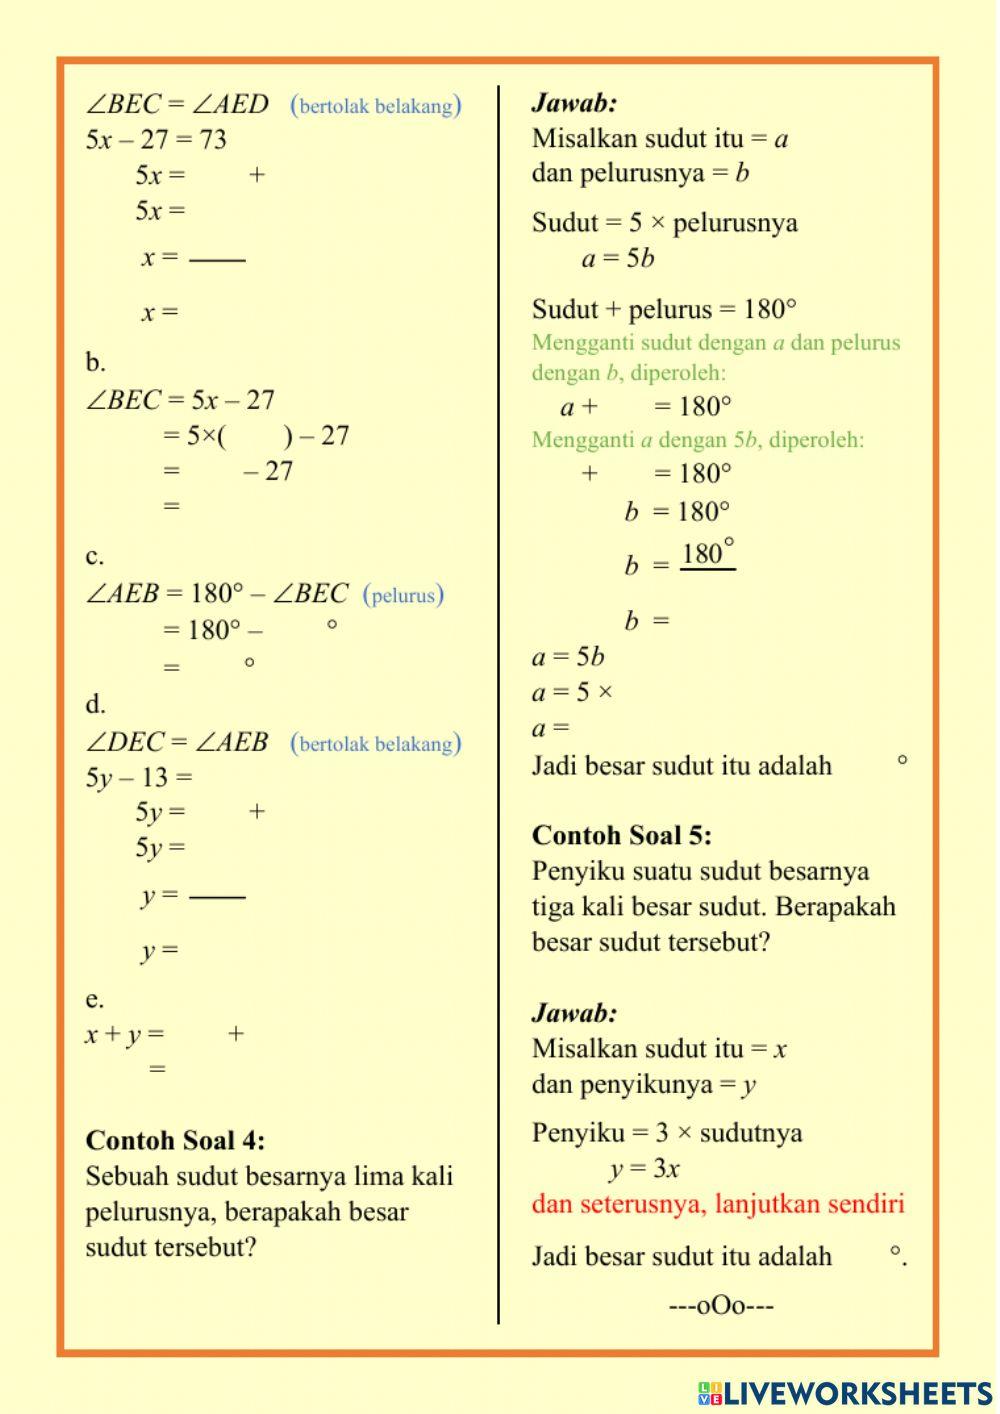 ∠BEC = ∠AED (bertolak belakang)
5x – 27 = 73
5x = +
5x =
x = ___
x =
b.
∠BEC = 5x – 27
= 5×( ) – 27
= – 27
=
c.
∠AEB = 180° – ∠BEC (pelurus)
= 180° – °
= °
d.
∠DEC = ∠AEB (bertolak belakang)
5y – 13 =
5y = +
5y =
y = ___
y =
e.
x + y = +
=
Contoh Soal 4:
Sebuah sudut besarnya lima kali
pelurusnya, berapakah besar
sudut tersebut?
Jawab:
Misalkan sudut itu = a
dan pelurusnya = b
Sudut = 5 × pelurusnya
a = 5b
Sudut + pelurus = 180°
Mengganti sudut dengan a dan pelurus
dengan b, diperoleh:
a + = 180°
Mengganti a dengan 5b, diperoleh:
+ = 180°
b = 180°
b = 180°
b =
a = 5b
a = 5 ×
a =
Jadi besar sudut itu adalah °
Contoh Soal 5:
Penyiku suatu sudut besarnya
tiga kali besar sudut. Berapakah
besar sudut tersebut?
Jawab:
Misalkan sudut itu = x
dan penyikunya = y
Penyiku = 3 × sudutnya
y = 3x
dan seterusnya, lanjutkan sendiri
Jadi besar sudut itu adalah °.
---oOo---
LIVE LIVEWORKSHEETS